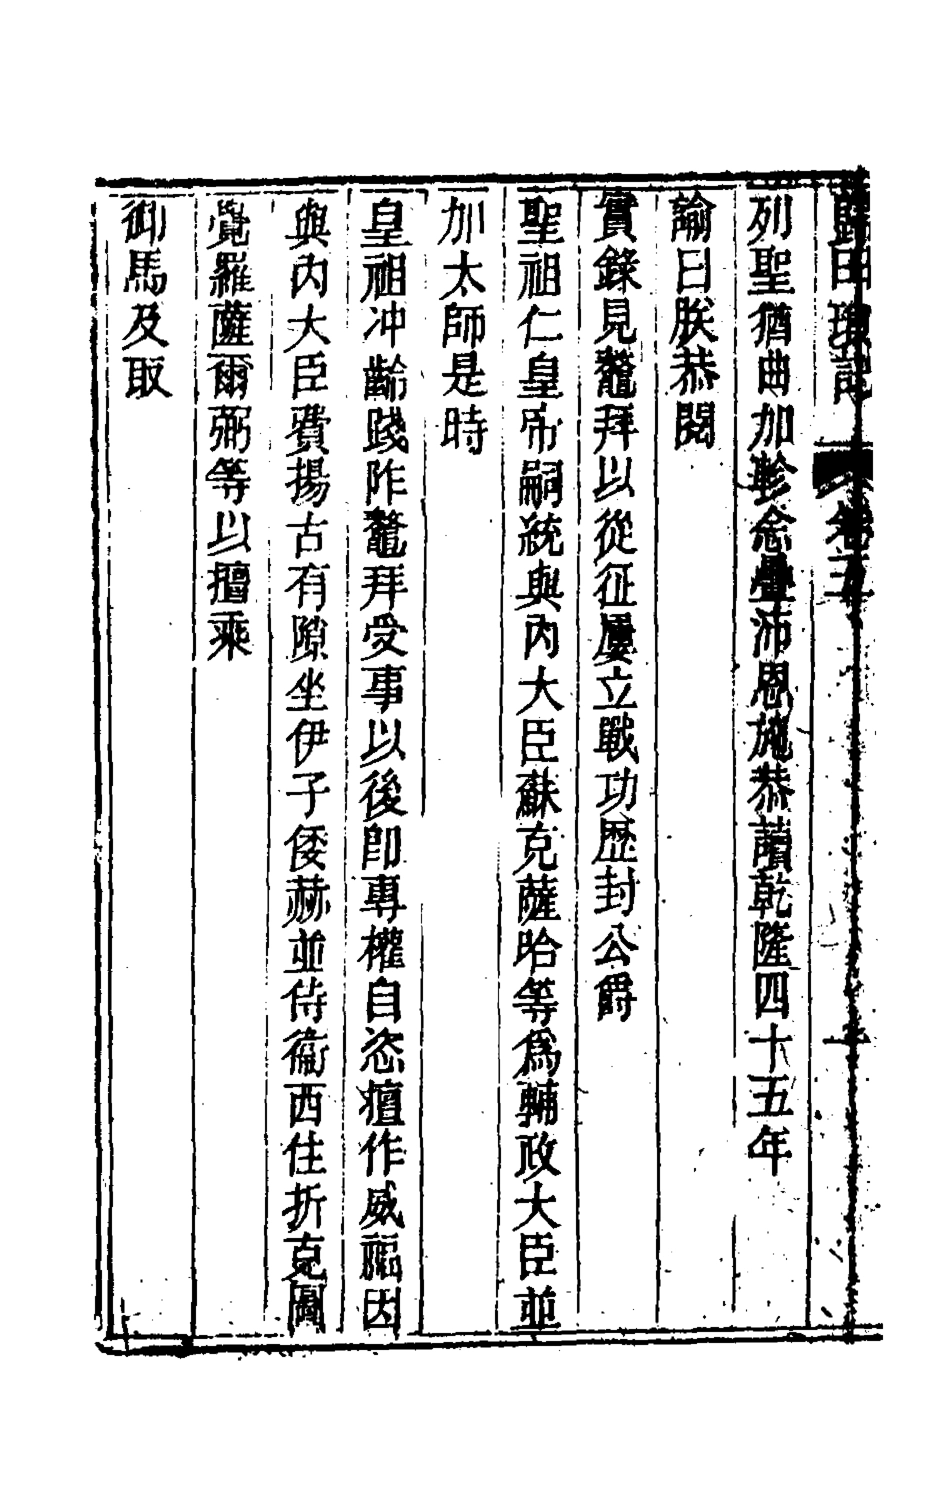 歸田瑣記 卷五
列聖猶曲加軫念疊沛恩施恭讀乾隆四十五年
諭曰朕恭閱
實錄見鼇拜以從征屢立戰功歷封公爵
聖祖仁皇帝嗣統與內大臣蘇克薩哈等爲輔政大臣並
加太師是時
皇祖冲齡踐阼鼇拜受事以後即專權自恣擅作威福因
與內大臣費揚古有隙坐伊子倭赫並侍衞西住折克圖
覺羅薩爾弼等以擅乘
御馬及取